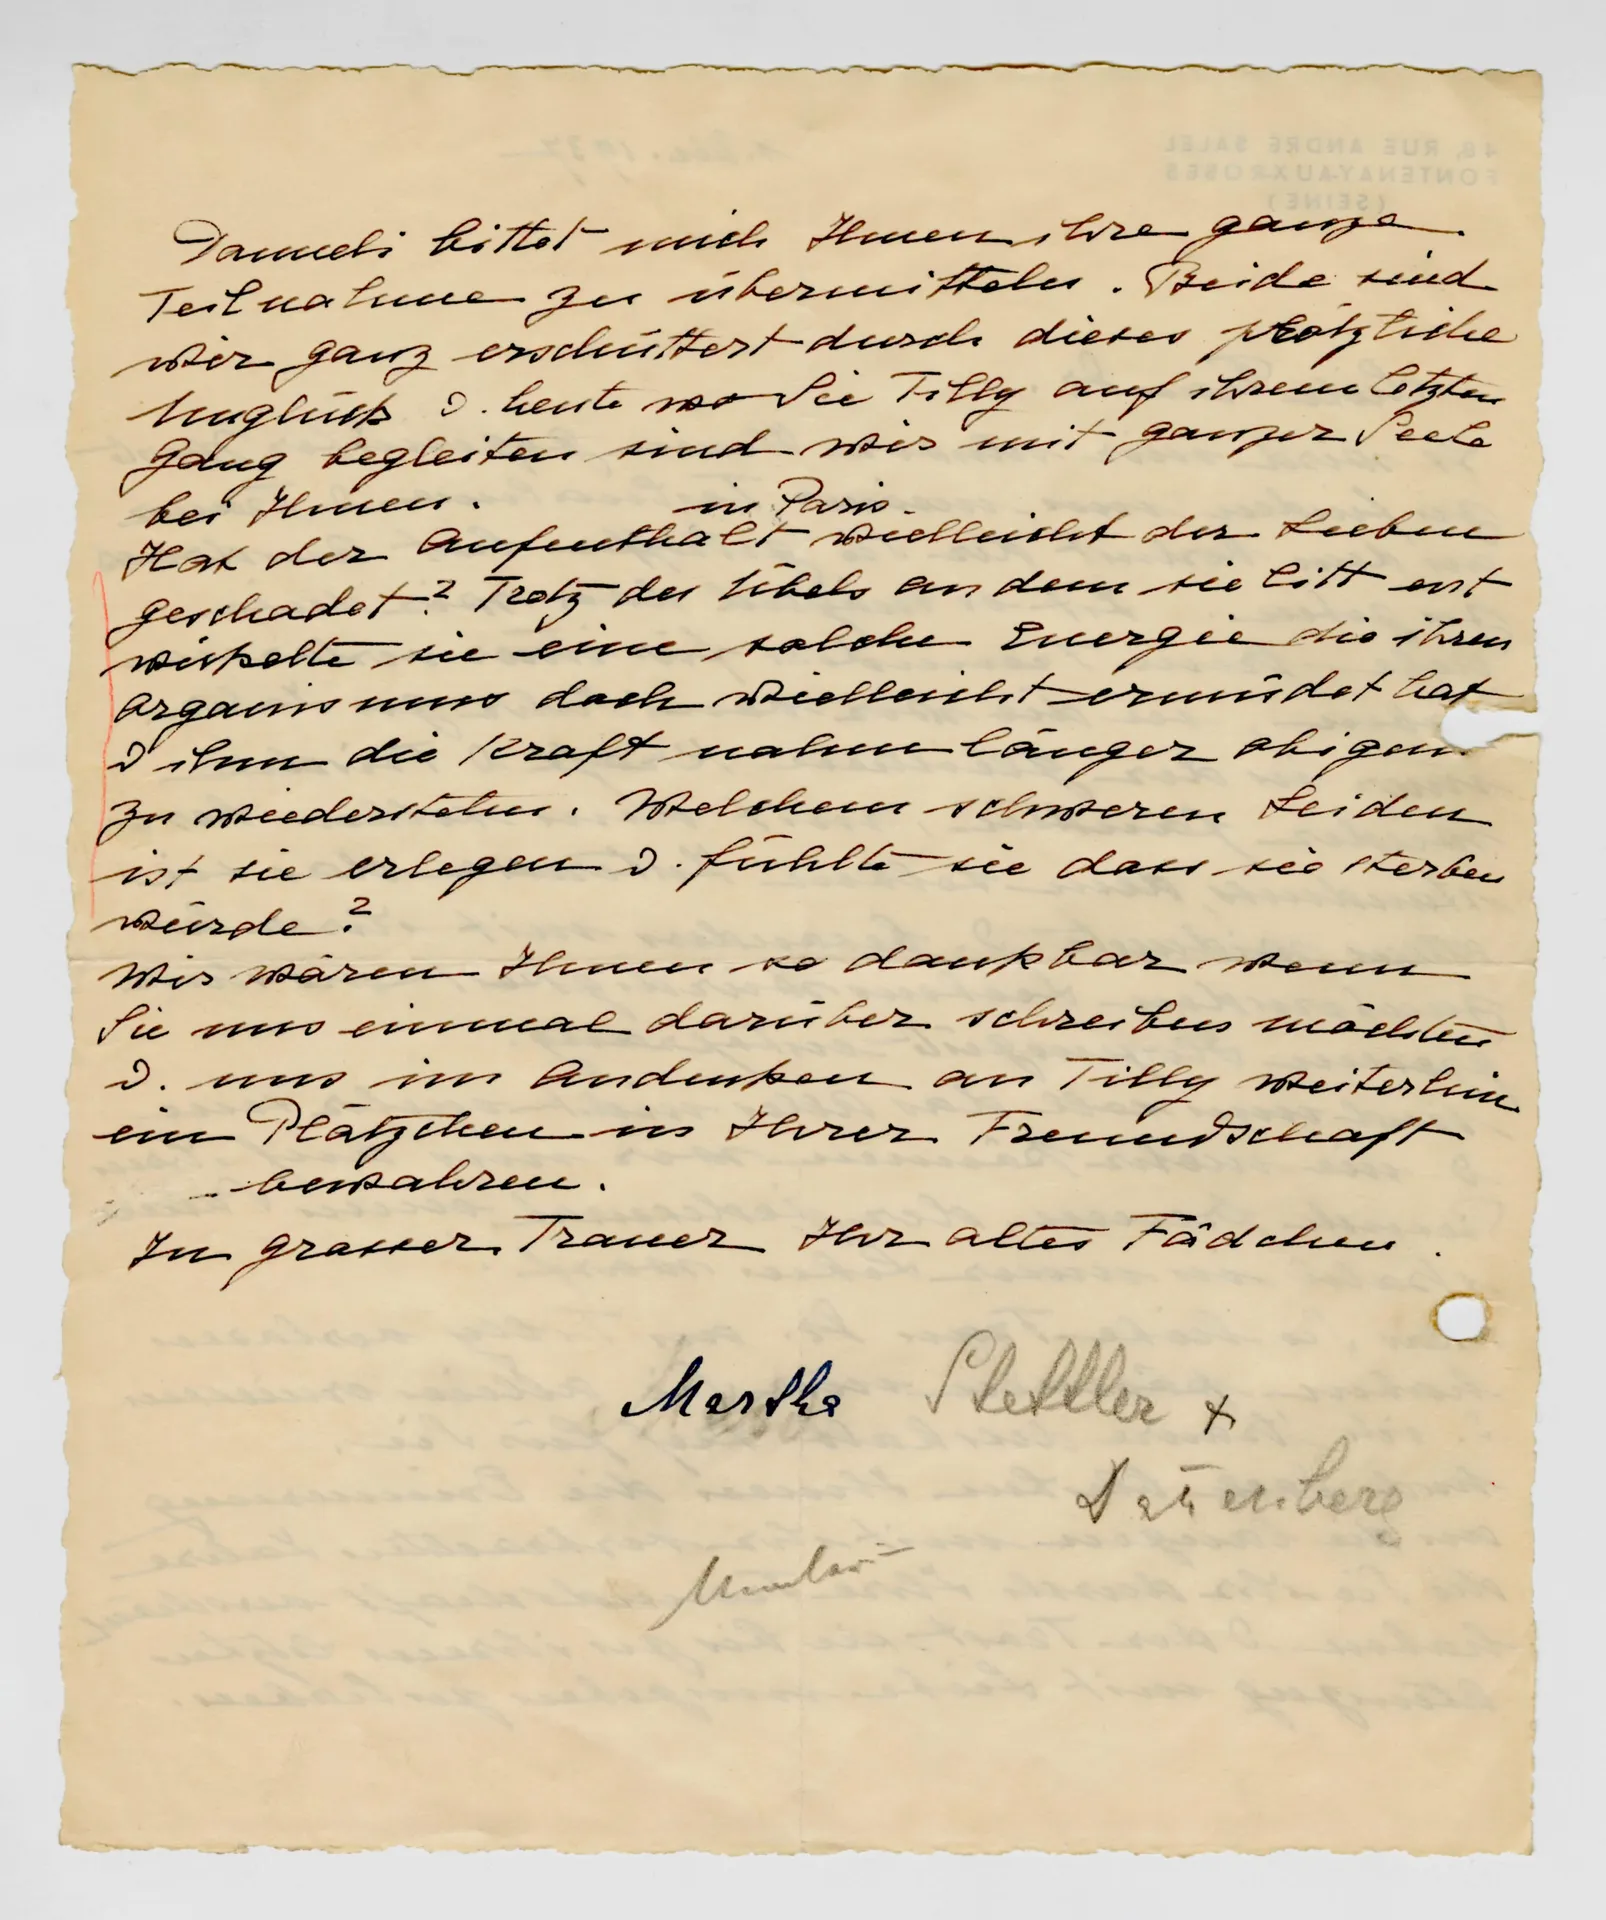 48, RUE ANDRÉ SALEL
FONTENAY-AUX-ROSES
(SEINE)
Danneli bittet mich Ihnen ihre ganze
Teilnahme zu übermitteln. Beide sind
wir ganz erschüttert durch dieses plötzliche
Unglück u. heute wo Sie Tilly auf ihrem letzten
Gang begleiten sind wir mit ganzer Seele
bei Ihnen.
in Paris
Hat der Aufenthalt vielleicht der Lieben
geschadet? Trotz des Übels an dem sie litt ent
wickelte sie eine solche Energie die ihren
Organismus doch vielleicht ermüdet hat
u ihm die Kraft nahm länger obigem
zu wiederstehn. Welchem schweren Leiden
ist sie erlegen u. fühlte sie dass sie sterben
würde?
Wir wären Ihnen so dankbar wenn
Sie uns einmal darüber schreiben möchten
u. uns im Andenken an Tilly weiterhin
ein Plätzchen in Ihrer Freundschaft
bewahren.
In grosser Trauer Ihr altes Fädchen.
Martha Stettler +